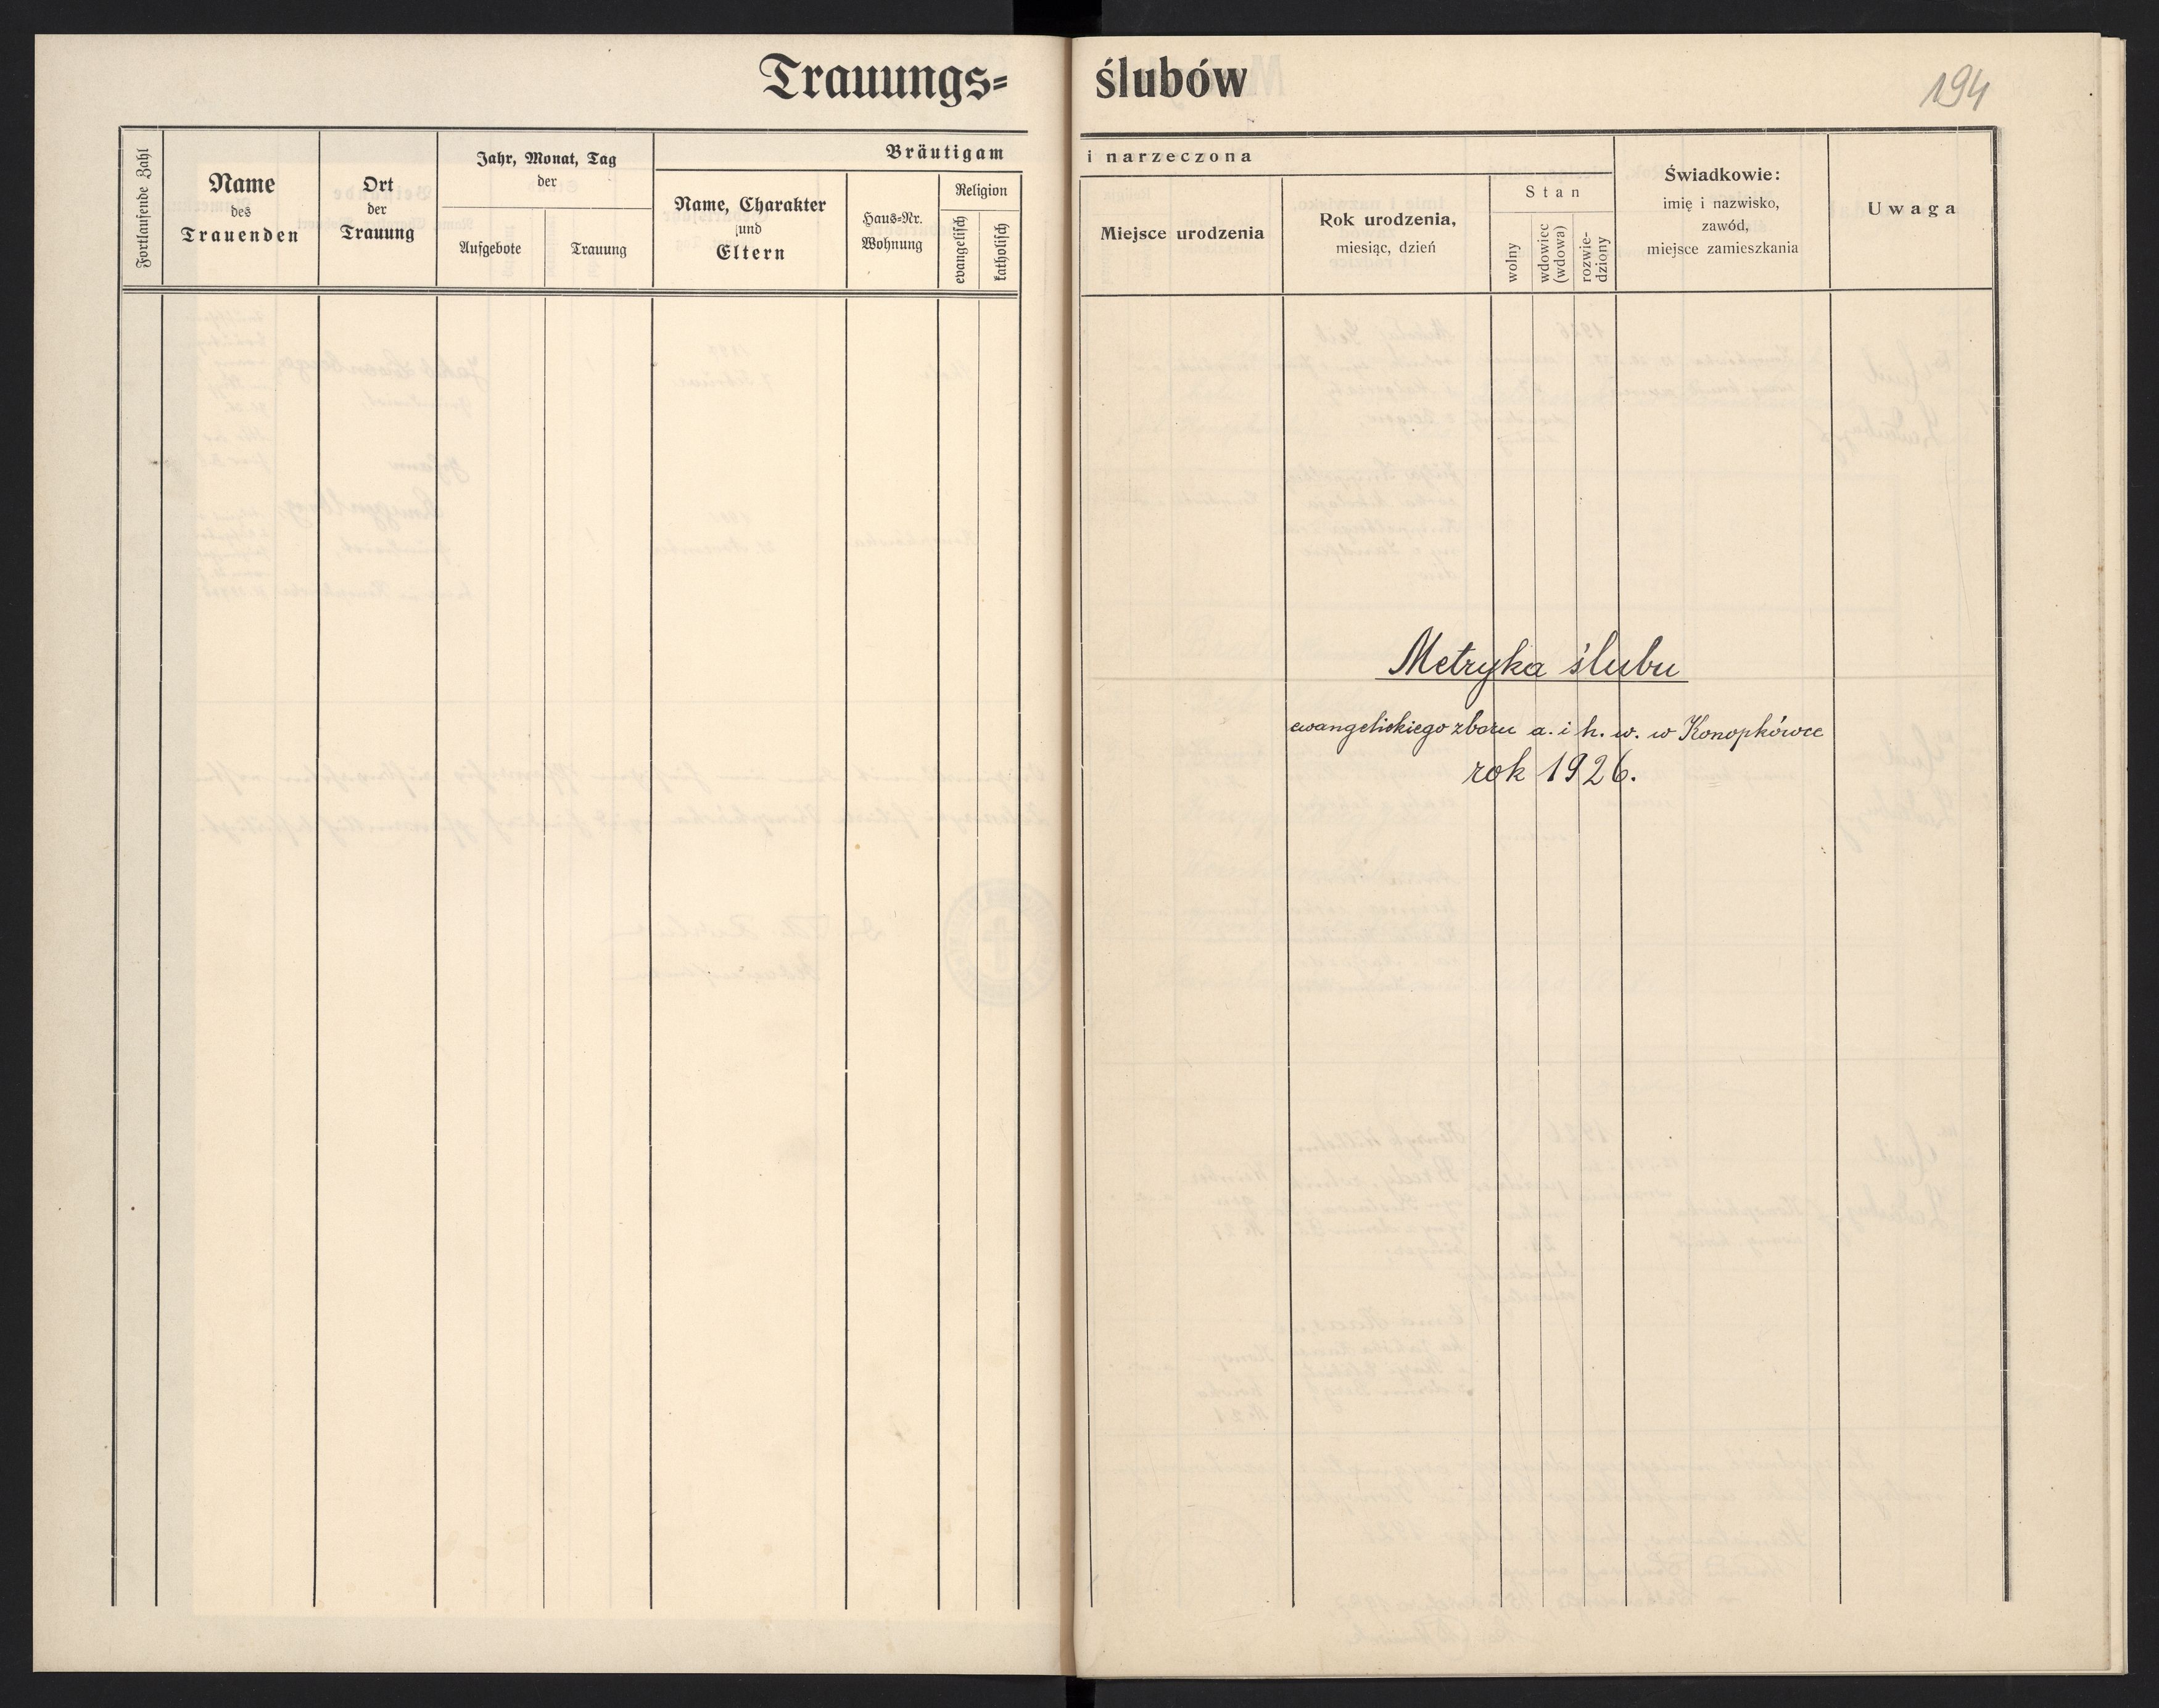 Trauungs=
Fortlaufende Zahl
Name
des
Trauenden
Ort
der
Trauung
Jahr, Monat, Tag
der
Aufgebote
Trauung
Bräutigam
Name, Charakter
und
Eltern
Haus=Nr.
Wohnung
Religion
evangelisch
katholisch
ślubów
194
i narzeczona
Miejsce urodzenia
Rok urodzenia,
miesiąc, dzień
Stan
wolny
wdowiec
(wdowa)
rozwie-
dziony
Świadkowie:
imię i nazwisko,
zawód,
miejsce zamieszkania
Uwaga
Metryka ślubu
ewangelickiego zboru a. i h. w. w Konopkówce
rok 1926.